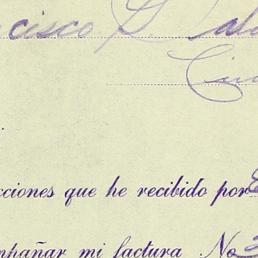 cisco
Ciu
cciones que he recibido por
mpañar mi factura No